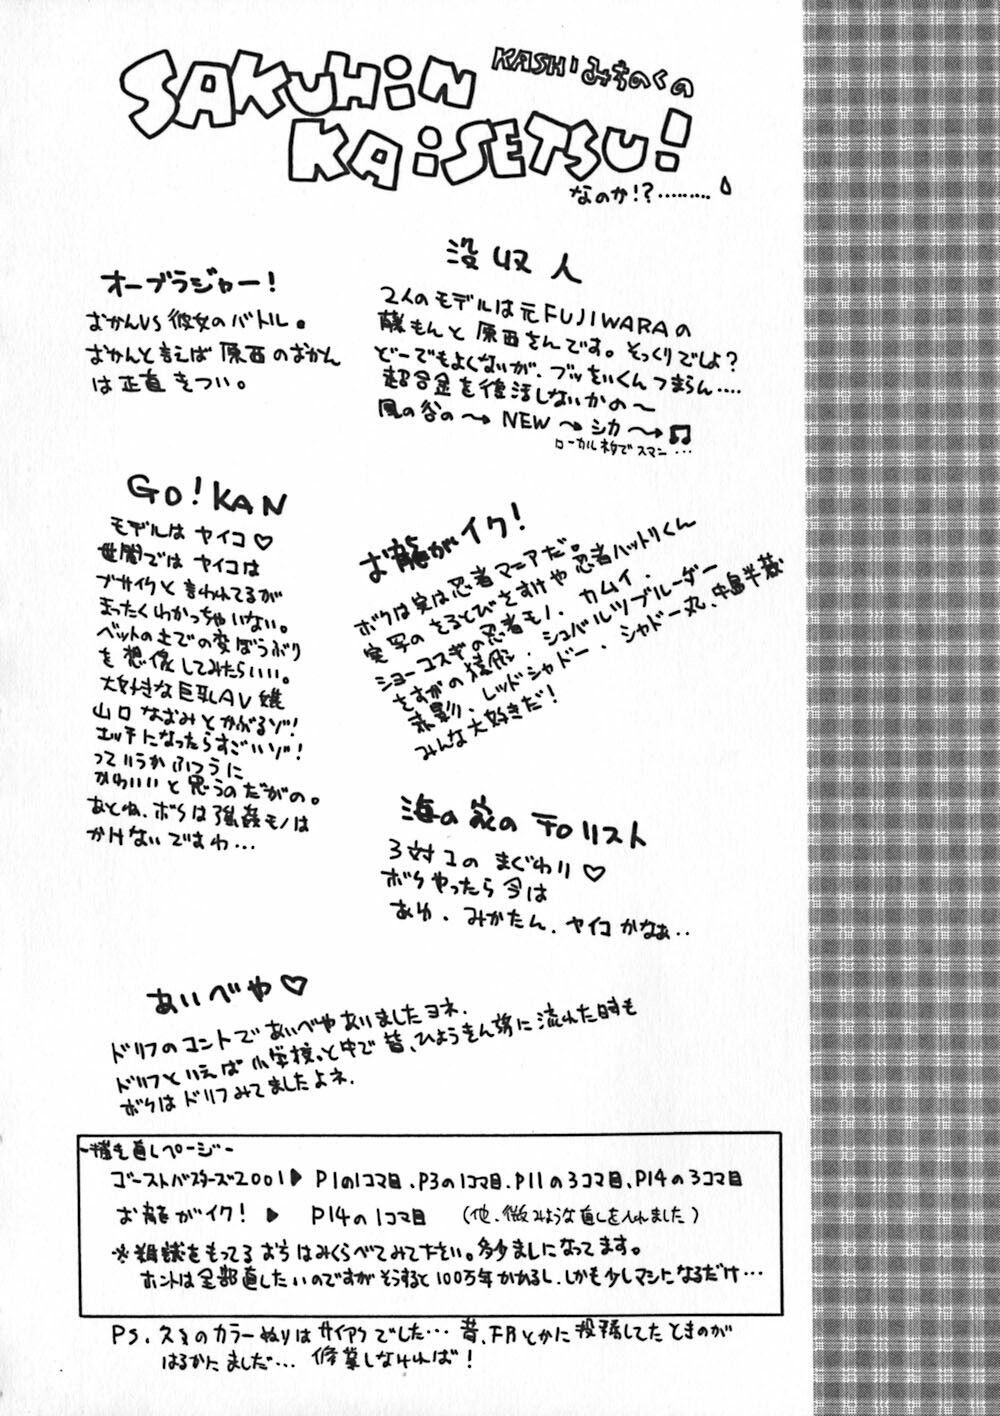 KASHIみちのくの
SAKUHiN
KAiSETSU!
なのか!?………
没収人
2人のモデルは元FUJIWARAの
藤もんと原西さんです。そっくりでしょ?
どーでもよくないが、ブッちぃくんつまらん…
超合金を復活しないかの〜
風の谷の〜→ NEW 〜→ シカ 〜→♫
ローカルネタでスマン…
オーブラジャー!
おかんVS彼女のバトル。
おかんと言えば原西のおかん
は正直きつい。
GO!KAN
モデルはヤイコ♡
世間ではヤイコは
ブサイクと言われてるが
まったくわかっちゃいない。
ベットの上での変ぼうぶり
を想像してみたらいい。
大好きな巨乳AV嬢
山口なおみとかがるゾ!
エッチになったらすごいゾ!
っていうかふつうに
かわいいと思うのだがの。
あとね、ボクは強姦モノは
かけないですわ…
お龍がイク!
ボクは実は忍者マニアだ。
実写のさるとびさすけや忍者ハットリくん
ショーコスギの忍者モノ、カムイ、
さすがの猿飛、シュバルツブルーダー
赤影、レッドシャドー、シャドー丸、中島半蔵
みんな大好きだ!
海の家のテロリスト
3対1のまぐわり♡
ボクやったら今は
あゆ、みかたん、ヤイコかなぁ..
あいべや♡
ドリフのコントであいべやありましたヨネ.
ドリフといえば小学校と中で昔、ひょうきん族に流れた時も
ボクはドリフみてましたよネ.
-描き直しページ-
ゴーストバスターズ2001▶ P1の1コマ目、P3の1コマ目、P11の3コマ目、P14の3コマ目
お龍がイク! ▶ P14の1コマ目 (他、微みような直しを入れました)
※雑誌をもってるおちはみくらべてみて下さい。多少ましになってます。
ホントは全部直したいのですがそうすると100万年かかるし、しかも少しマシになるだけ…
PS. 久々のカラーぬりはサイアクでした… 昔、FRとかに投稿してたときのが
はるかにましだ… 修業しなければ!